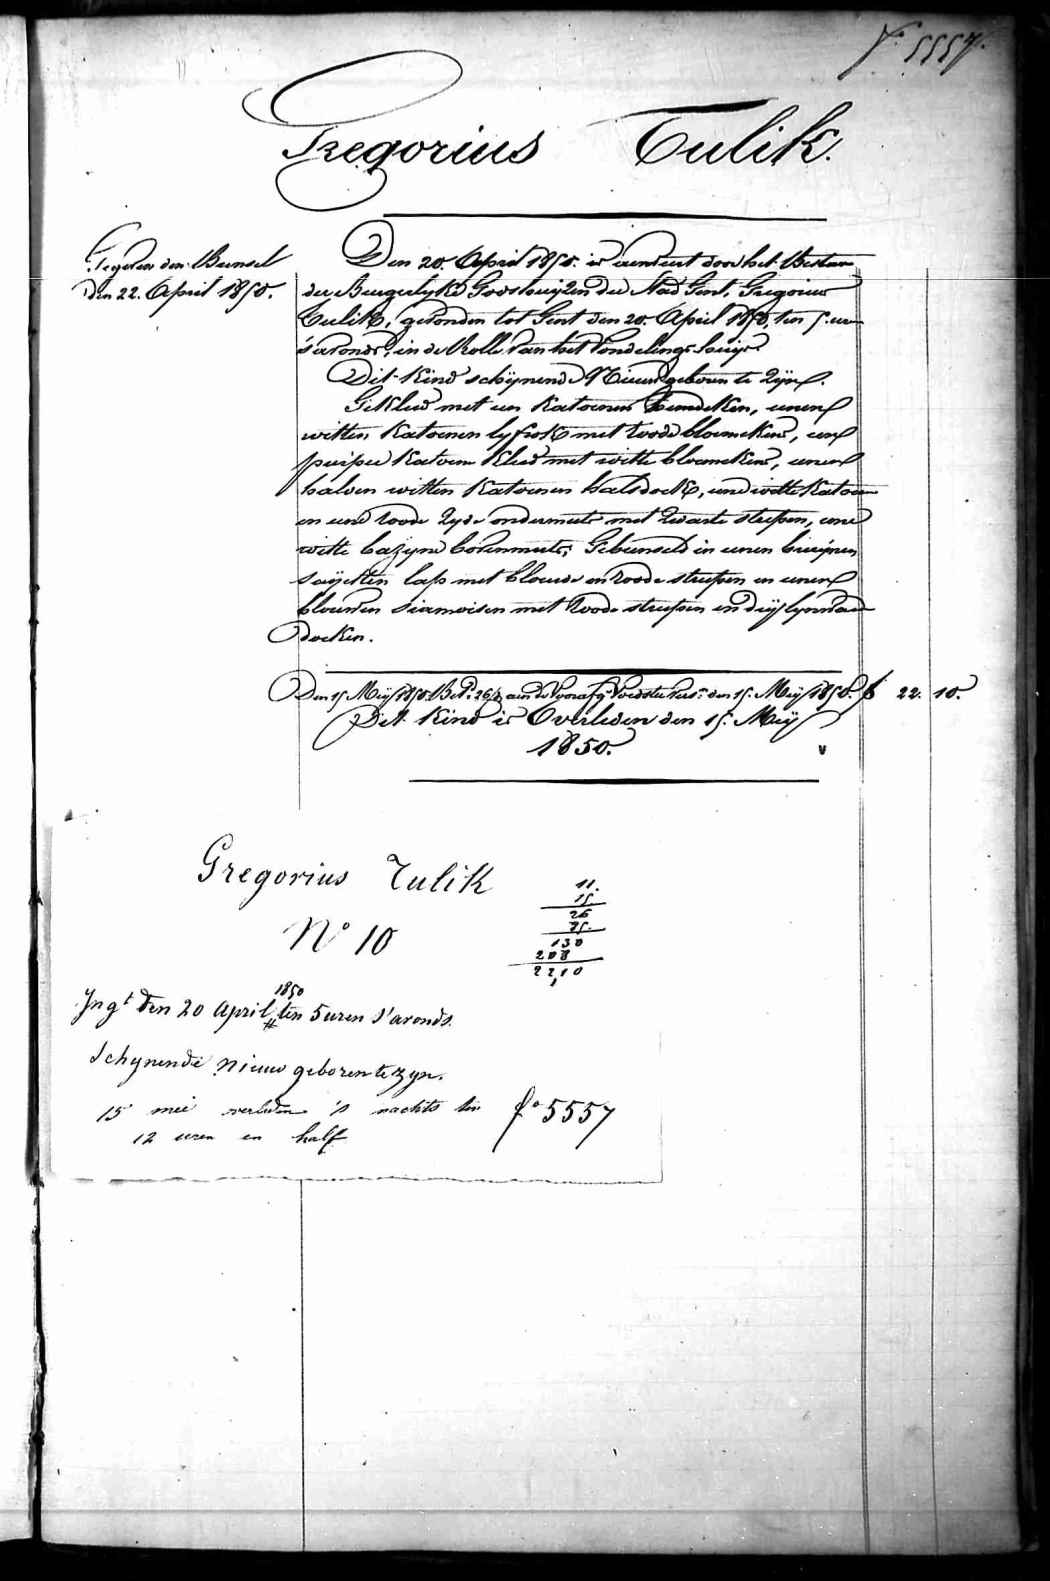 f° 5557.
Gregorius Tulik.
Gegeven den Bunsel
den 22. April 1850.
Den 20. April 1850. is aenveert door het Bestuer
der Burgerlyke Godshuyzen der Stad Gent, Gregorius
Tulik, gevonden tot Gent den 20. April 1850, ten 5. uren
s'avonds, in de Rolle van het Vondelings-huys.
Dit Kind schynende Nieuwgeboren te Zyn.
Gekleed met een Katoenen hemdeken, eenen
witten Katoenen lyfrok met roode bloemekens, een
purper Katoen Kleed met witte bloemekens, eenen
halven witten Katoenen halsdoek, eene witte Katoen
en eene roode Zyde ondermuts met Zwarte streepen, eene
witte bazyne bovenmuts; Gebunseld in eenen bruynen
sayetten lap met blauwe en roode streepen en eenen
blauwen siamoisen met roode streepen en dry lynwaede
doeken.
Den 15 Mey 1850. Bet. 26/d aen de Voorafg. Voedster tot den 15. Mey 1850. f 22. 10.
Dit Kind is Overleden den 15. Mey
1850.
Gregorius Tulik
N° 10
11.
15.
26
85.
130
208
22,10
Jng.t den 20 April 1850 ten 5 uren s'avonds.
Schynende nieuw geboren te zyn.
15 mei overleden 's nachts ten
12 uren en half
f° 5557